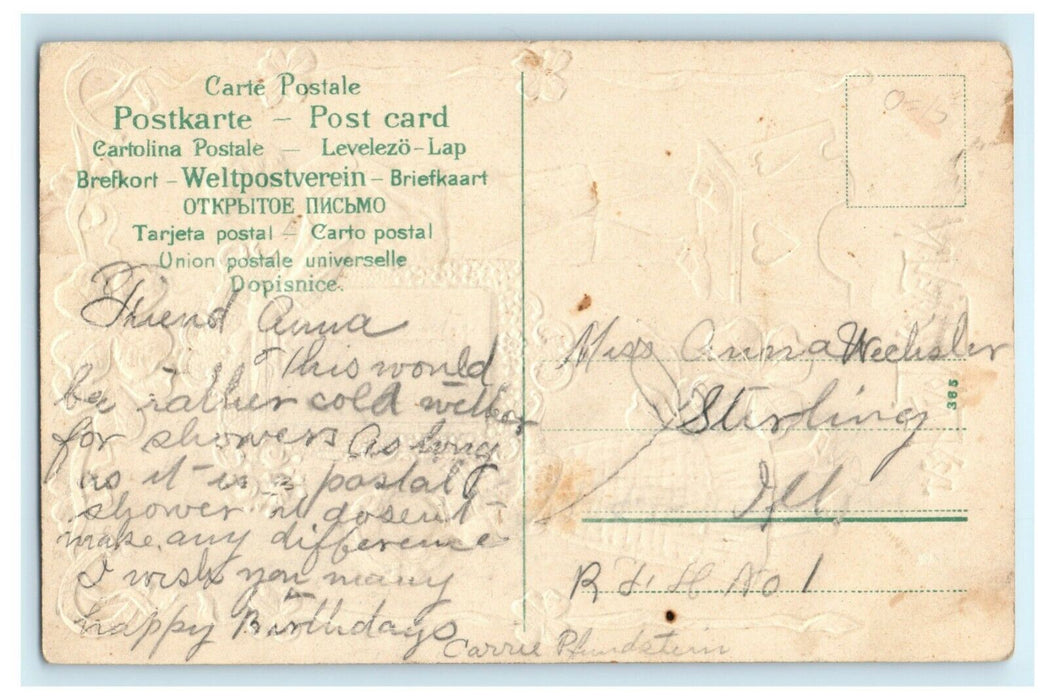 Carte Postale
Postkarte – Post card
Cartolina Postale — Levelezö-Lap
Brefkort – Weltpostverein – Briefkaart
ОТКРЫТОЕ ПИСЬМО
Tarjeta postal – Carto postal
Union postale universelle
Dopisnice.
Friend Anna
This would
be rather cold wether
for showers As long
as it is a postal
shower it dosent
make any difference
I wish you many
happy Birthdays
Carrie Pfundstein
Miss Anna Wechsler
Sterling
Ill.
R F No 1
385